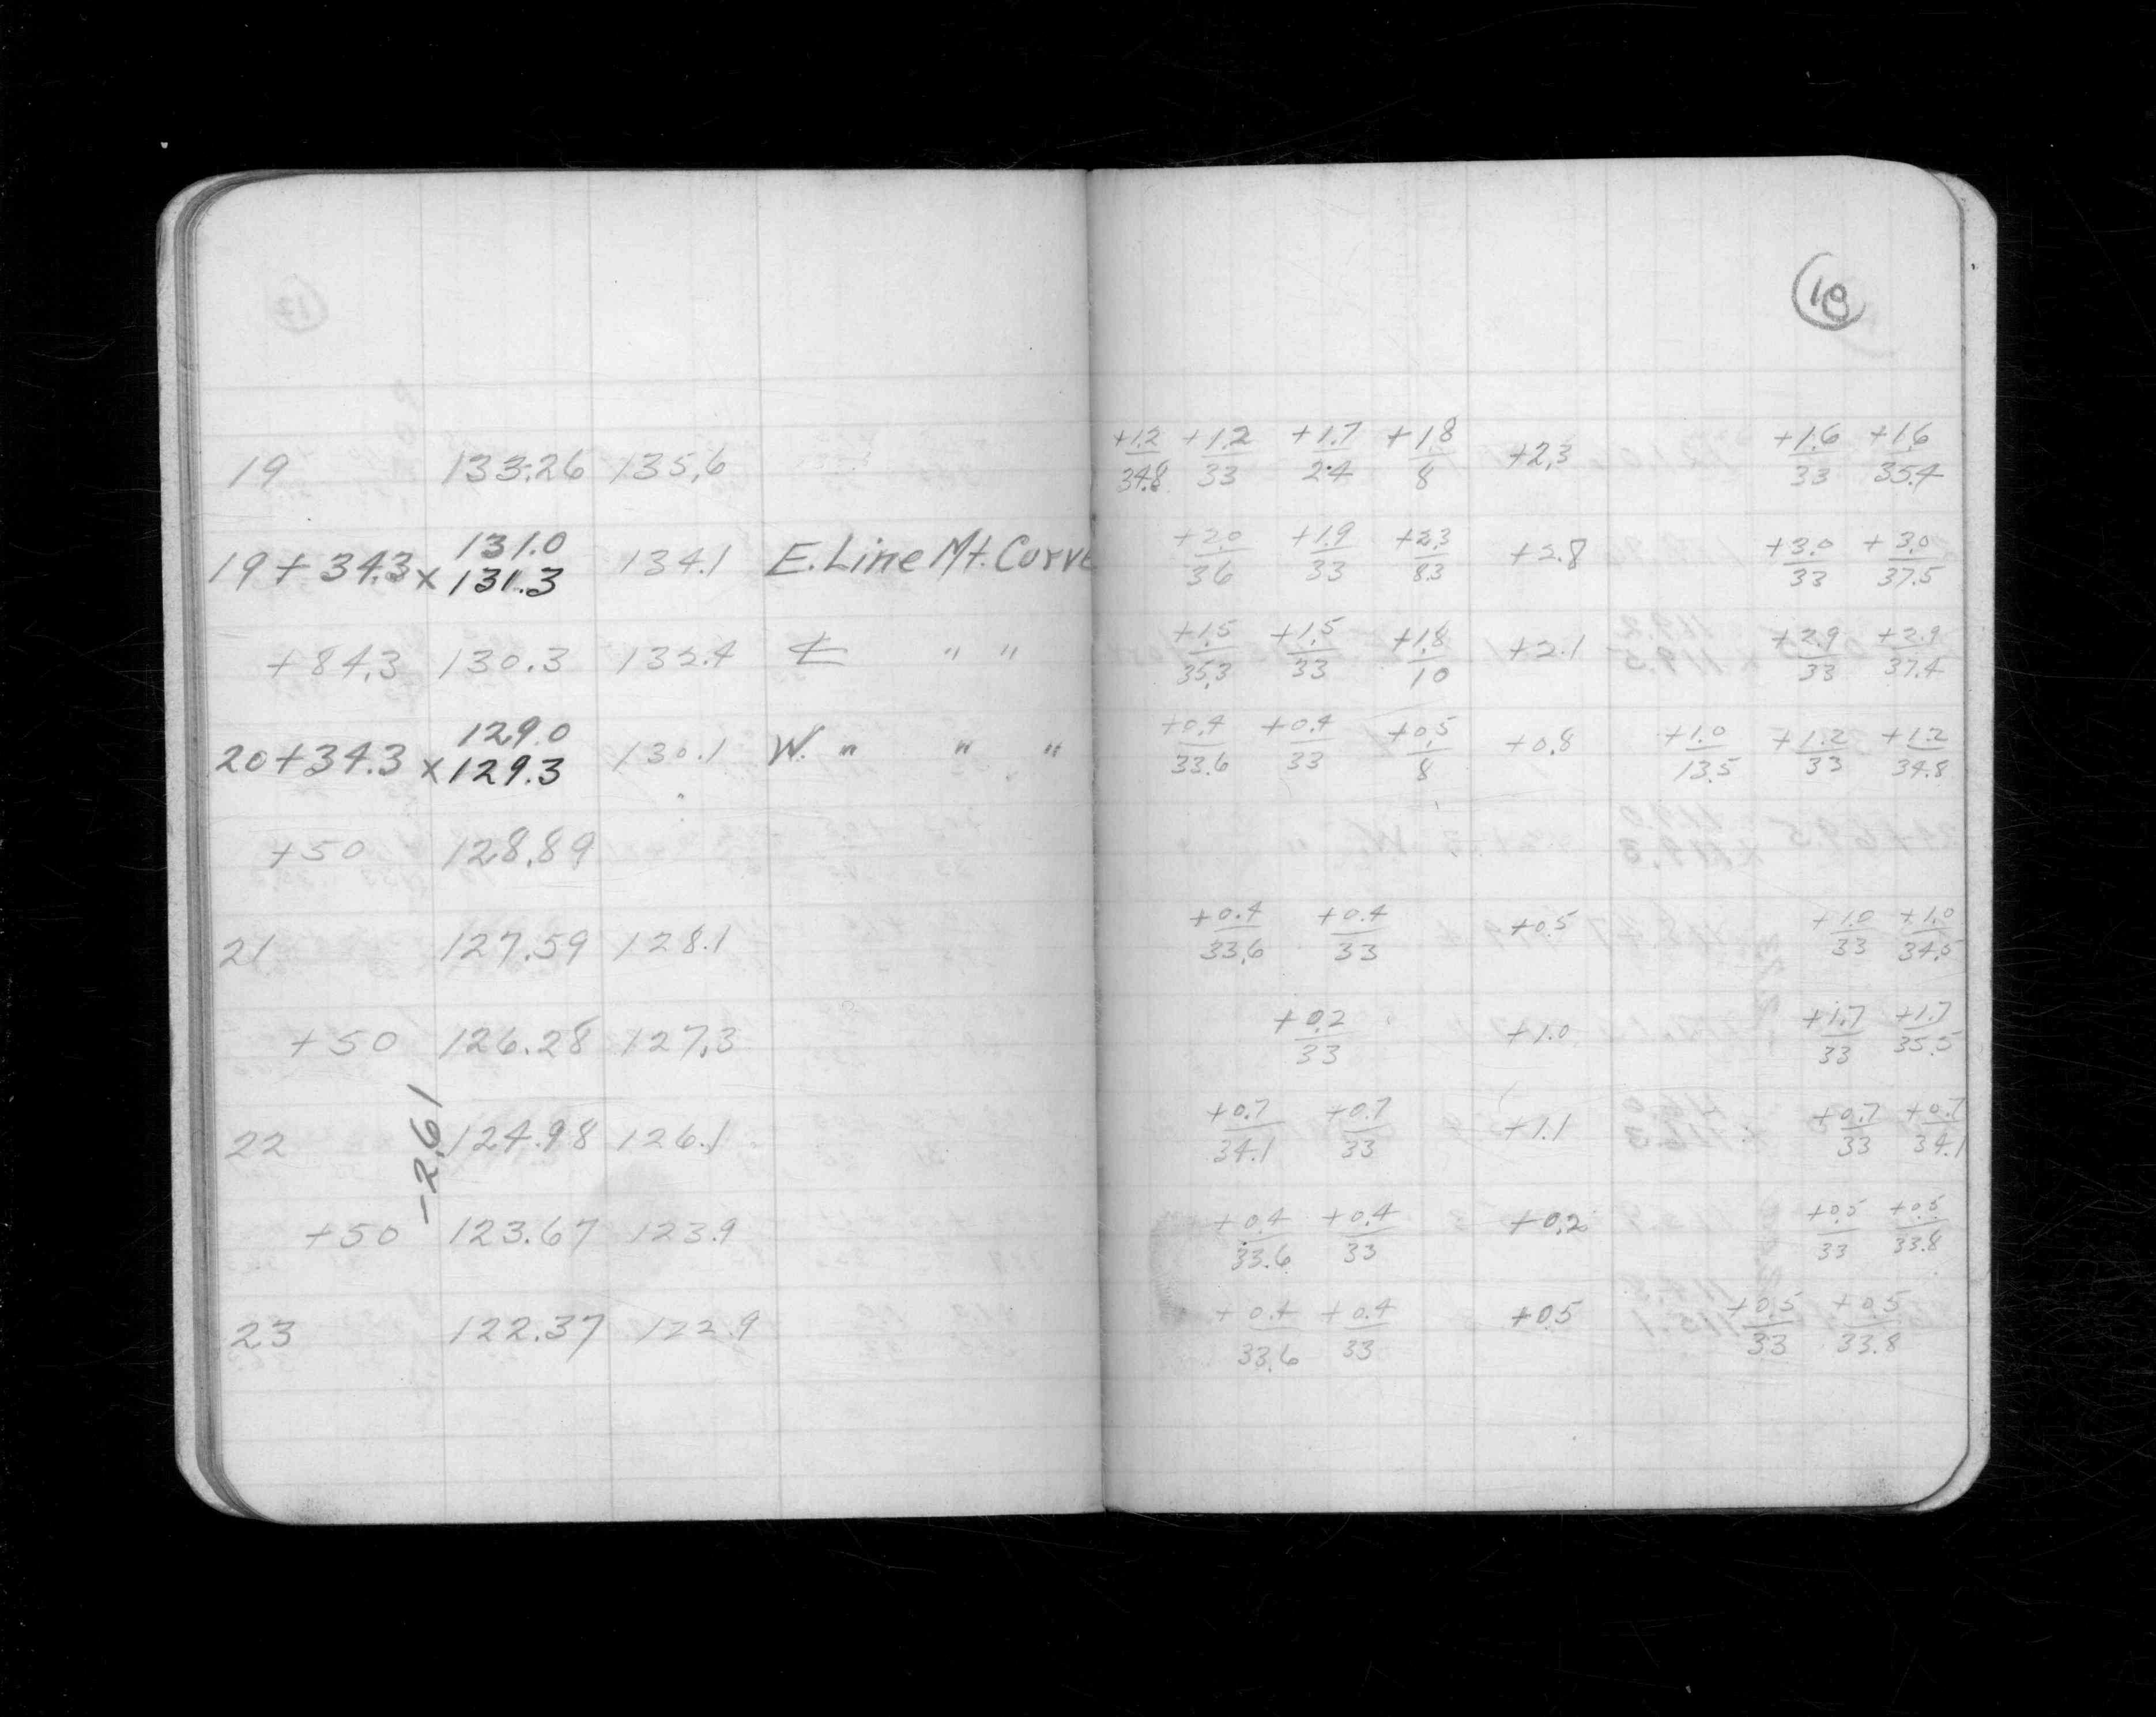 18
19 133.26 135.6 +1.2/34.8 +1.2/33 +1.7/24 +1.8/8 +2.3 +1.6/33 +1.6/35.4
131.0
19+34.3 x 131.3 134.1 E. Line Mt. Curve +2.0/36 +1.9/33 +2.3/8.3 +2.8 +3.0/33 +3.0/37.5
+84.3 130.3 132.4 ℄ " " +1.5/35.3 +1.5/33 +1.8/10 +2.1 +2.9/33 +2.9/37.4
129.0
20+34.3 x 129.3 130.1 W. " " " +0.4/33.6 +0.4/33 +0.5/8 +0.8 +1.0/13.5 +1.2/33 +1.2/34.8
+50 128.89
21 127.59 128.1 +0.4/33.6 +0.4/33 +0.5 +1.0/33 +1.0/34.5
+50 126.28 127.3 +0.2/33 +1.0 +1.7/33 +1.7/35.5
-2.61
22 124.98 126.1 +0.7/34.1 +0.7/33 +1.1 +0.7/33 +0.7/34.1
+50 123.67 123.9 +0.4/33.6 +0.4/33 +0.2 +0.5/33 +0.5/33.8
23 122.37 122.9 +0.4/33.6 +0.4/33 +0.5 +0.5/33 +0.5/33.8